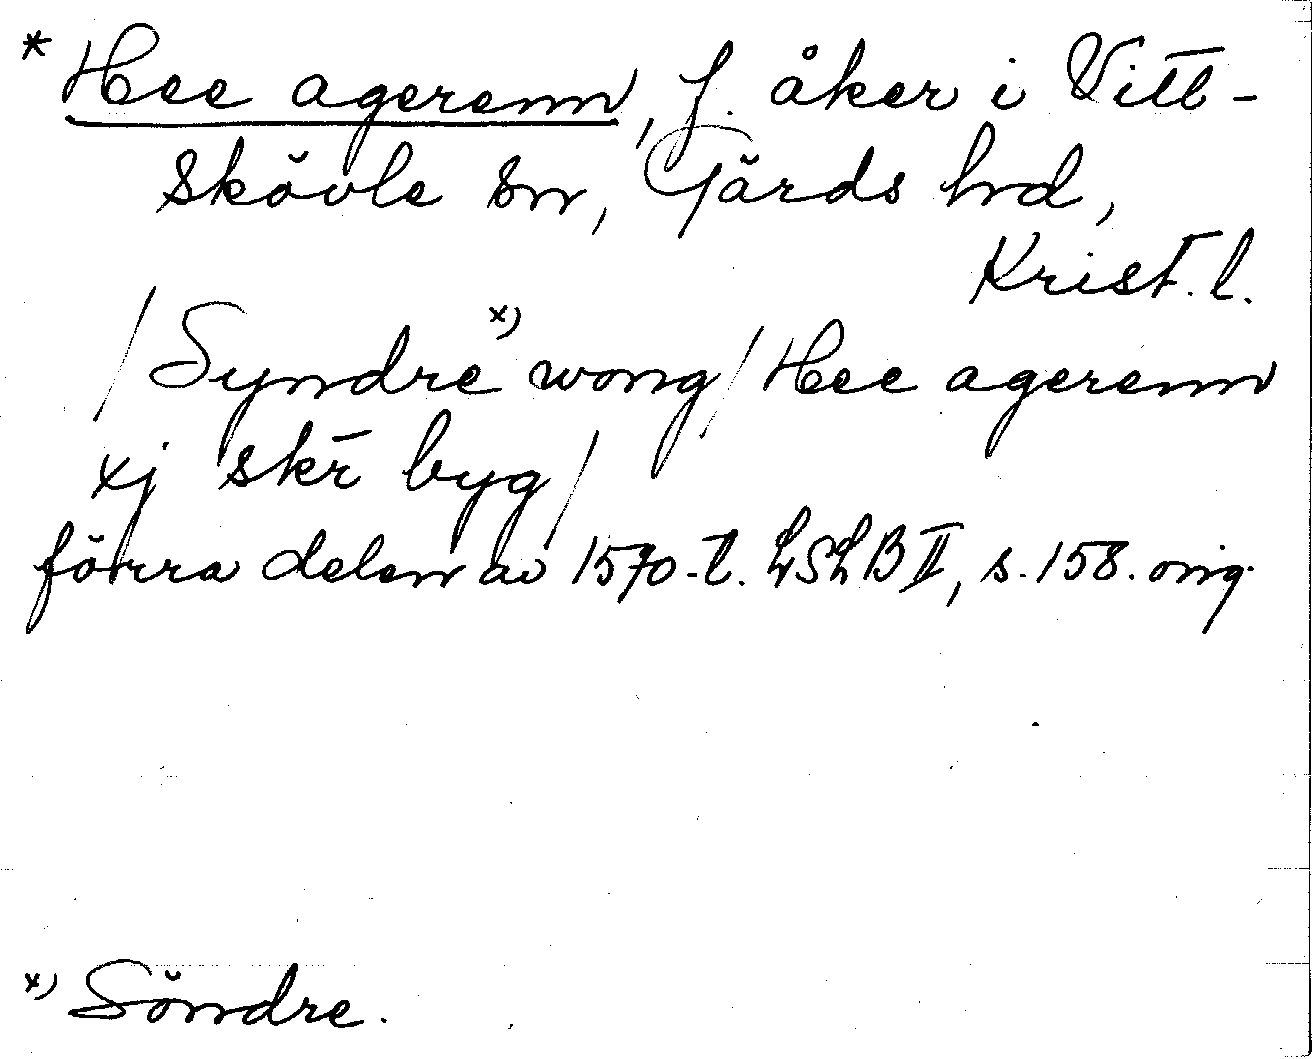 * Hee agerenn, f. åker i Vitt-
skövle sn, Gärds hd,
Krist. l.
/Syndre x) wong/ Hee agerenn
xj skr̄ byg/
förra delen av 1570-t. LSLB II, s. 158. orig.
x) Söndre.